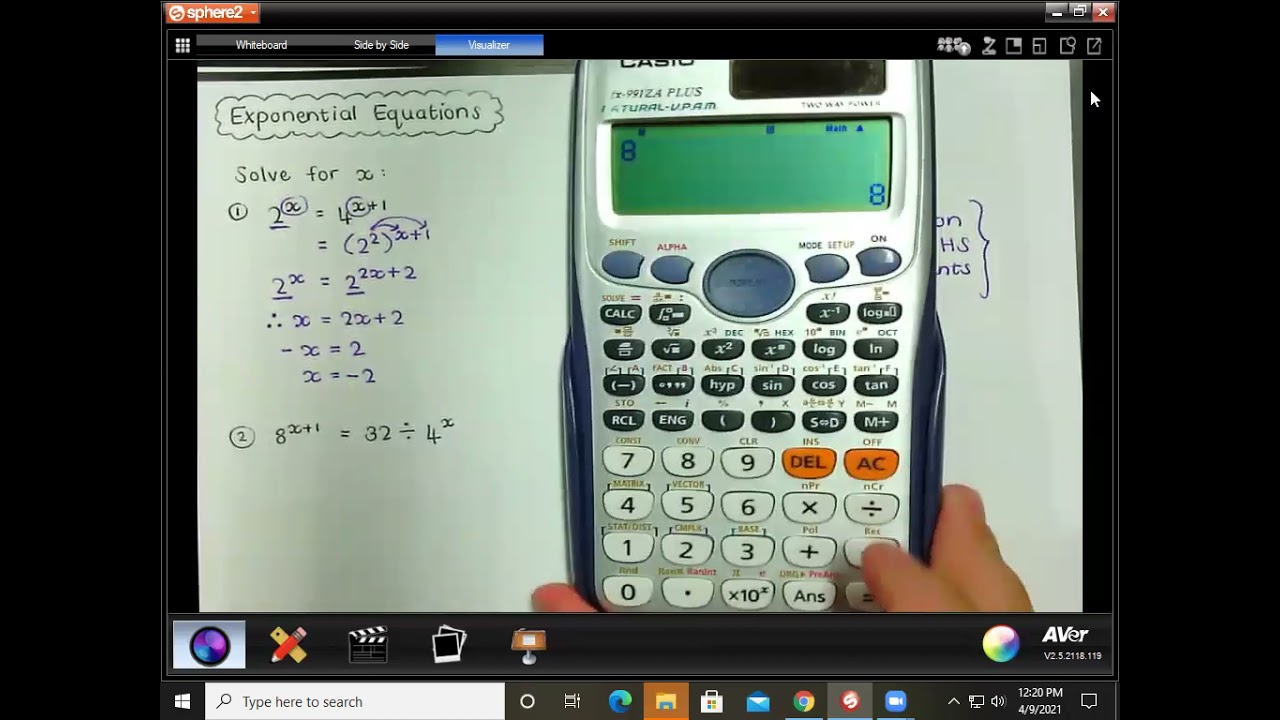 sphere2
Whiteboard Side by Side Visualizer
Exponential Equations
Solve for x:
① 2^x = 4^(x+1)
= (2^2)^(x+1)
2^x = 2^(2x+2)
∴ x = 2x+2
-x = 2
x = -2
② 8^(x+1) = 32 ÷ 4^x
on
HS
nts
CASIO
fx-991ZA PLUS
NATURAL-V.P.A.M.
TWO WAY POWER
M D Math ▲
8
8
SHIFT ALPHA MODE SETUP ON
SOLVE = : x!
CALC x⁻¹ log
x³ DEC HEX BIN OCT
x² log ln
A FACT B Abs C sin⁻¹ D cos⁻¹ E tan⁻¹ F
(−) hyp sin cos tan
STO i % , X Y M− M
RCL ENG ( ) S⇔D M+
CONST CONV CLR INS OFF
7 8 9 DEL AC
MATRIX VECTOR nPr nCr
4 5 6 × ÷
STAT/DIST CMPLX BASE Pol Rec
1 2 3 +
Rnd Ran# RanInt π e DRG▸ PreAns
0 · ×10ˣ Ans =
AVer
V2.5.2118.119
Type here to search
12:20 PM
4/9/2021